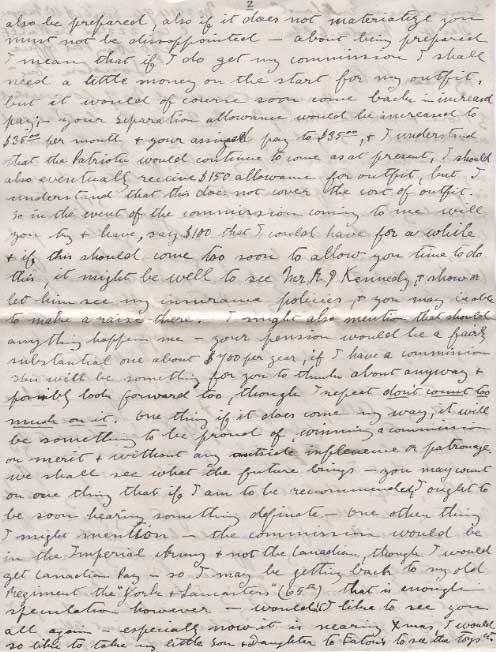 2
also be prepared, also if it does not materialize you
must not be dissappointed — about being prepared
I mean that if I do get my commission I shall
need a little money on the start for my outfit,
but it would of course soon come back in increased
pay; — your separation allowance would be increased to
$35.00 per month & your assigned pay to $35.00, & I understand
that the Patriotic would continue to come as at present, I should
also eventually receive $150 allowance for outfit, but I
understand that this does not cover the cost of outfit.
So in the event of the commission coming to me will
you try & have, say $100 that I could have for a while
& if this should come too soon to allow you time to do
this, it might be well to see Mr. Kennedy, & show or
let him see my insurance policies, & you may be able
to make a raise there — I might also mention that should
anything happen me — your pension would be a fairly
substantial one about $700 per year, if I have a commission
this will be something for you to think about anyway &
possibly look forward too, though I repeat don't count too
much on it. One thing if it does come my way, it will
be something to be proud of, winning a commission
on merit & without any outside influence or patronage
we shall see what the future brings — you may count
on one thing that if I am to be recommended I ought to
be soon hearing something definate — one other thing
I might mention — the commission would be
in the Imperial Army & not the Canadian, though I would
get Canadian Pay — so I may be getting back to my old
Regiment the "York & Lancasters" (65th) that is enough
speculation however — wouldn't I like to see you
all again — especially now it is nearing Xmas, I would
so like to take my little Son & Daughter to Eatons to see the toys